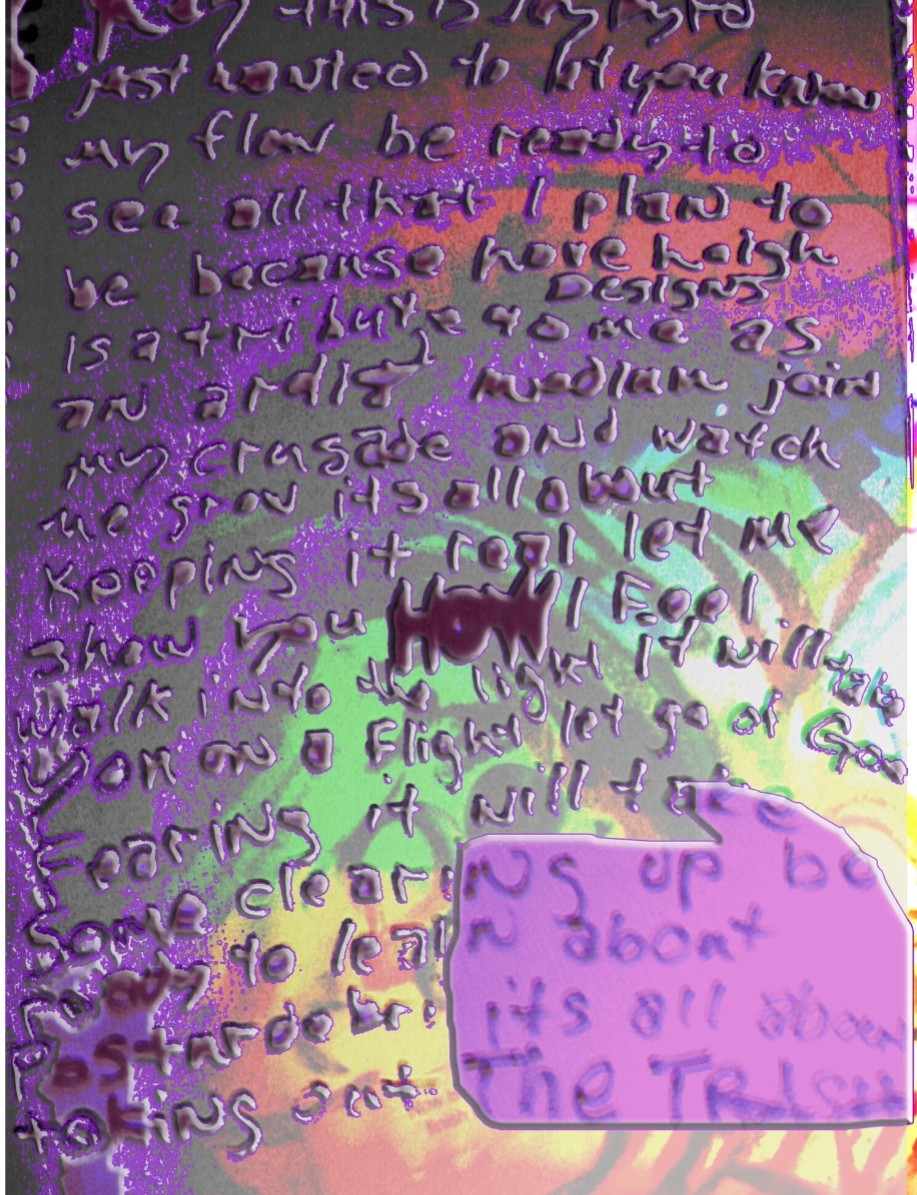 this is
just wanted to let you know
my flow be ready to
see all that I plan to
be because hove haigh
Designs
is a tribute to me as
an ardist medium join
my crusade and watch
me grow its all about
keeping it real let me
show you HOW I Feel
walk into the light it will take
you on a flight let go of
Fearing it will take
some clearing up be
ready to learn about
its all about
out The